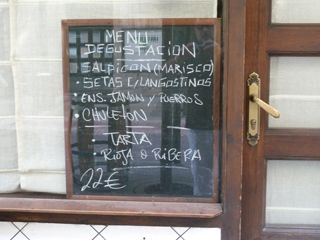 MENU
DEGUSTACION
SALPICON (MARISCO)
• SETAS C/LANGOSTINOS
• ENS. JAMON Y PUERROS
• CHULETON
• TARTA
• RIOJA O RIBERA
22€